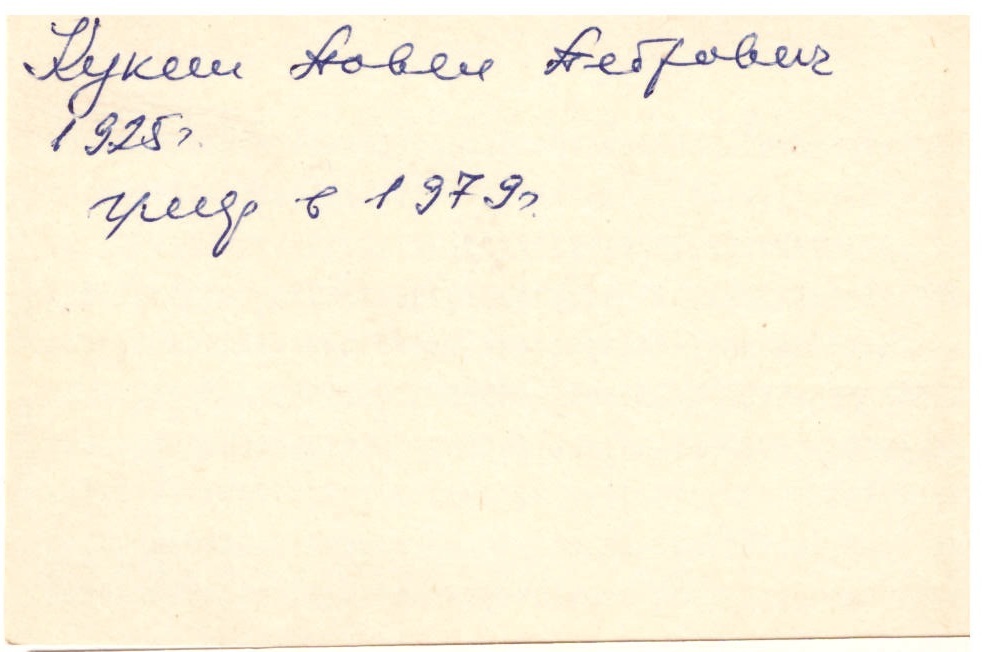 Павел Петрович
1925г.
умер в 1979г.